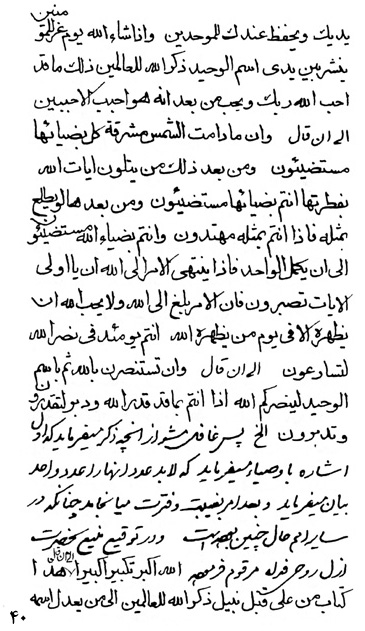 منين
يديك ويحفظ عندك للموحدين واذا شاء الله يوم عز للمؤ
ينشر بين يدى اسم الوحيد ذكر الله للعالمين ذلك ما قد
احب الله ربك ويحب من بعد انه هو احبب الاحببين
الى ان قال وان ما دامت الشمس مشرقة كل بضيائها
مستضيئون ومن بعد ذلك من يتلون ايات الله
بفطرتها انتم بضيائها مستضيئون ومن بعد هما لو يطلع
ن
بمثله فاذا انتم بمثله مهتدون وانتم بضياء الله مستضيئو
الى ان يكمل الواحد فاذا ينتهى الامر الى الله ان يا اولى
الايات تصبرون فان الامر بلغ الى الله ولا يحب الله ان
يظهره الا فى يوم من يظهره الله انتم يومئذ فى نصر الله
لتسارعون الى ان قال وان تستنصرن بالله ثم باسم
الوحيد لينصركم الله اذا انتم بما قد قدر الله ودبر لتقدرو
ن
وتدبرون الخ پس غافل مشو از انچه ذكر ميفرمايد كه اول
اشاره باوصياء ميفرمايد كه لابد عدد انها را عدد واحد
بيان ميفرمايد وبعد امر بغيبت وفترت ميانجامد چنانكه در
ساير امم حال چنين بوده است ودر توقيع منيع كه حضرت
ازل روحى فداه مرقوم فرموده الله اكبر تكبيرا كبيرا هذا
الى ان قال
كتاب من على قبل نبيل ذكر الله للعالمين الى من يعدل اسمه
۴۰